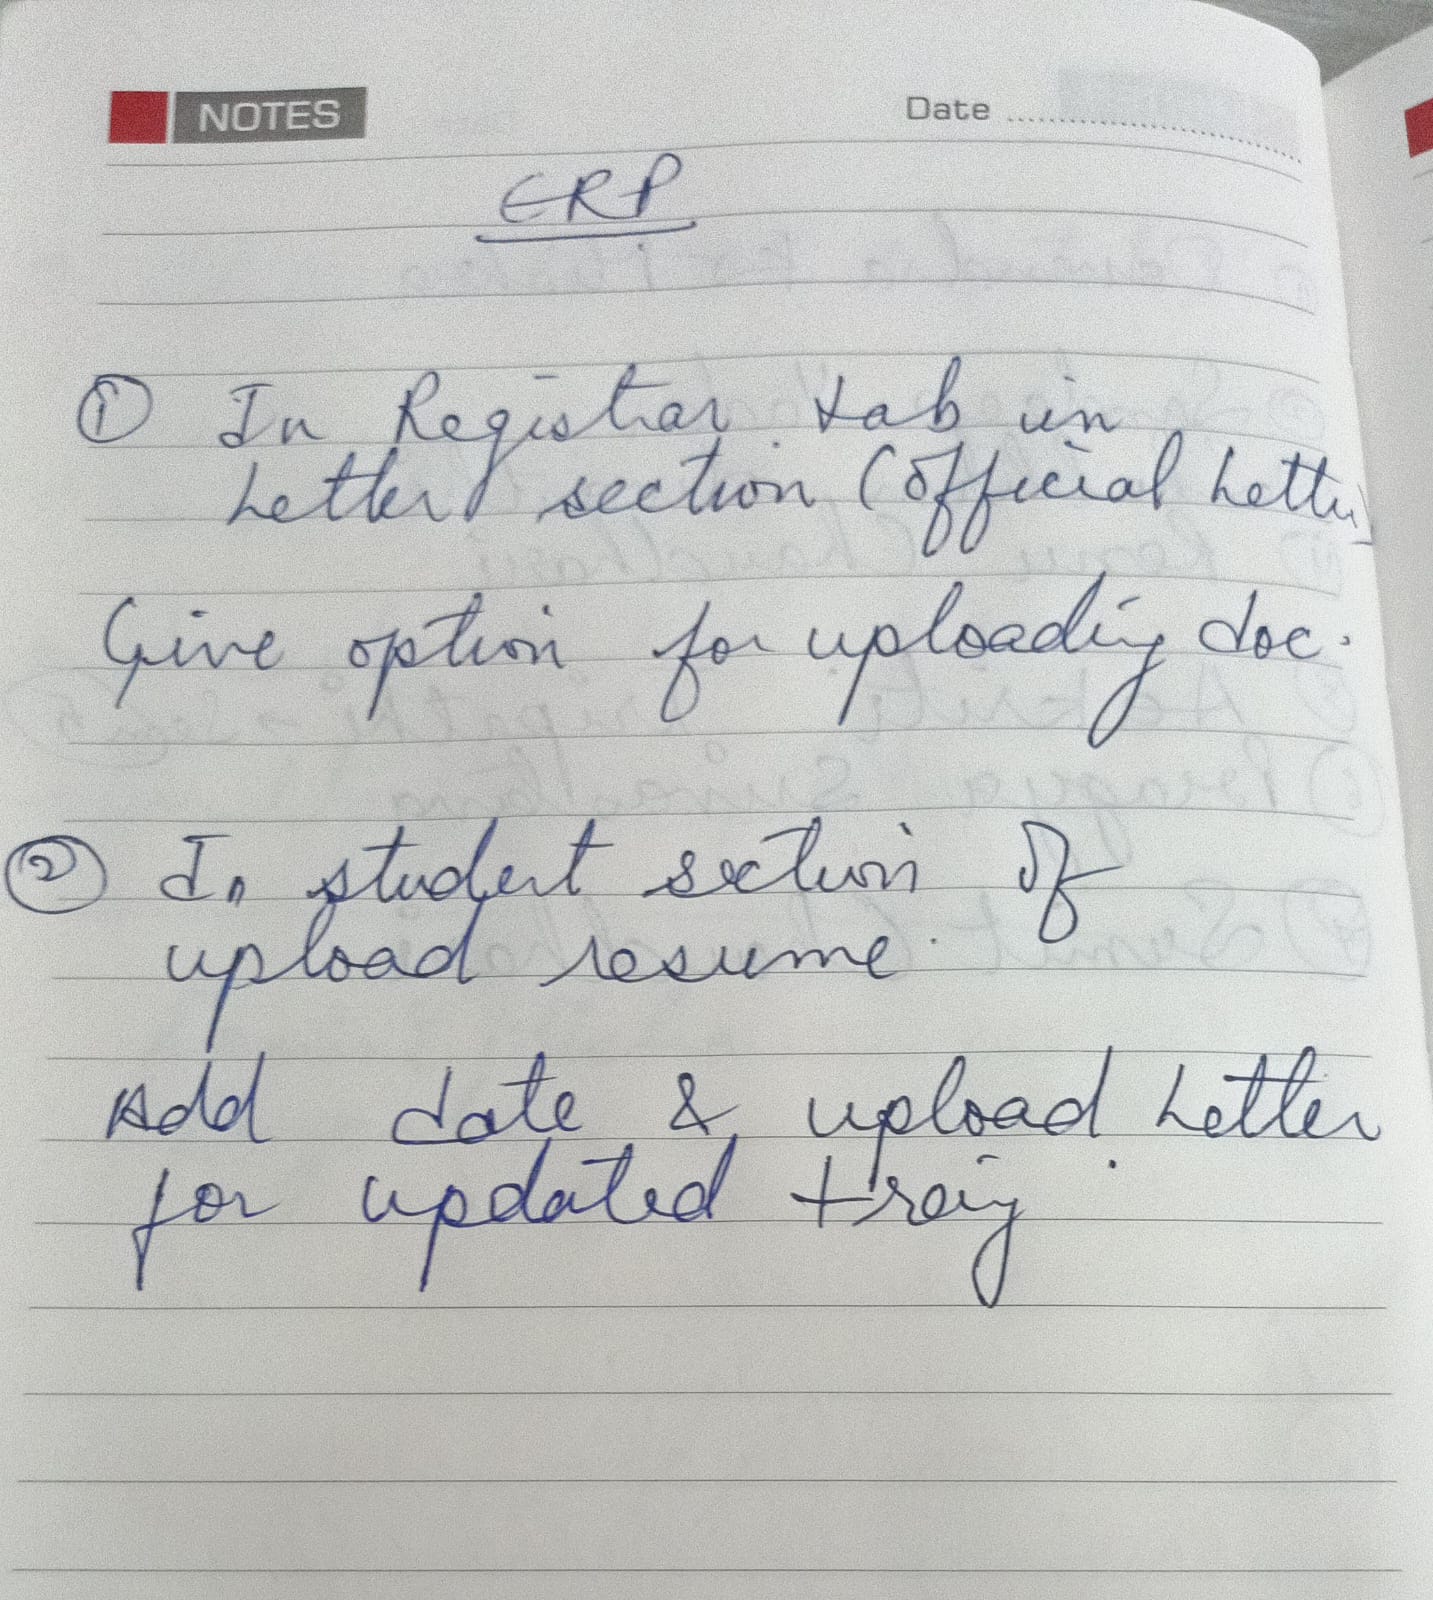 NOTES
Date
ERP
① In Registrar tab in
Letter section (official Letter)
Give option for uploading doc.
② In student section of
upload resume.
Add date & upload Letter
for updated